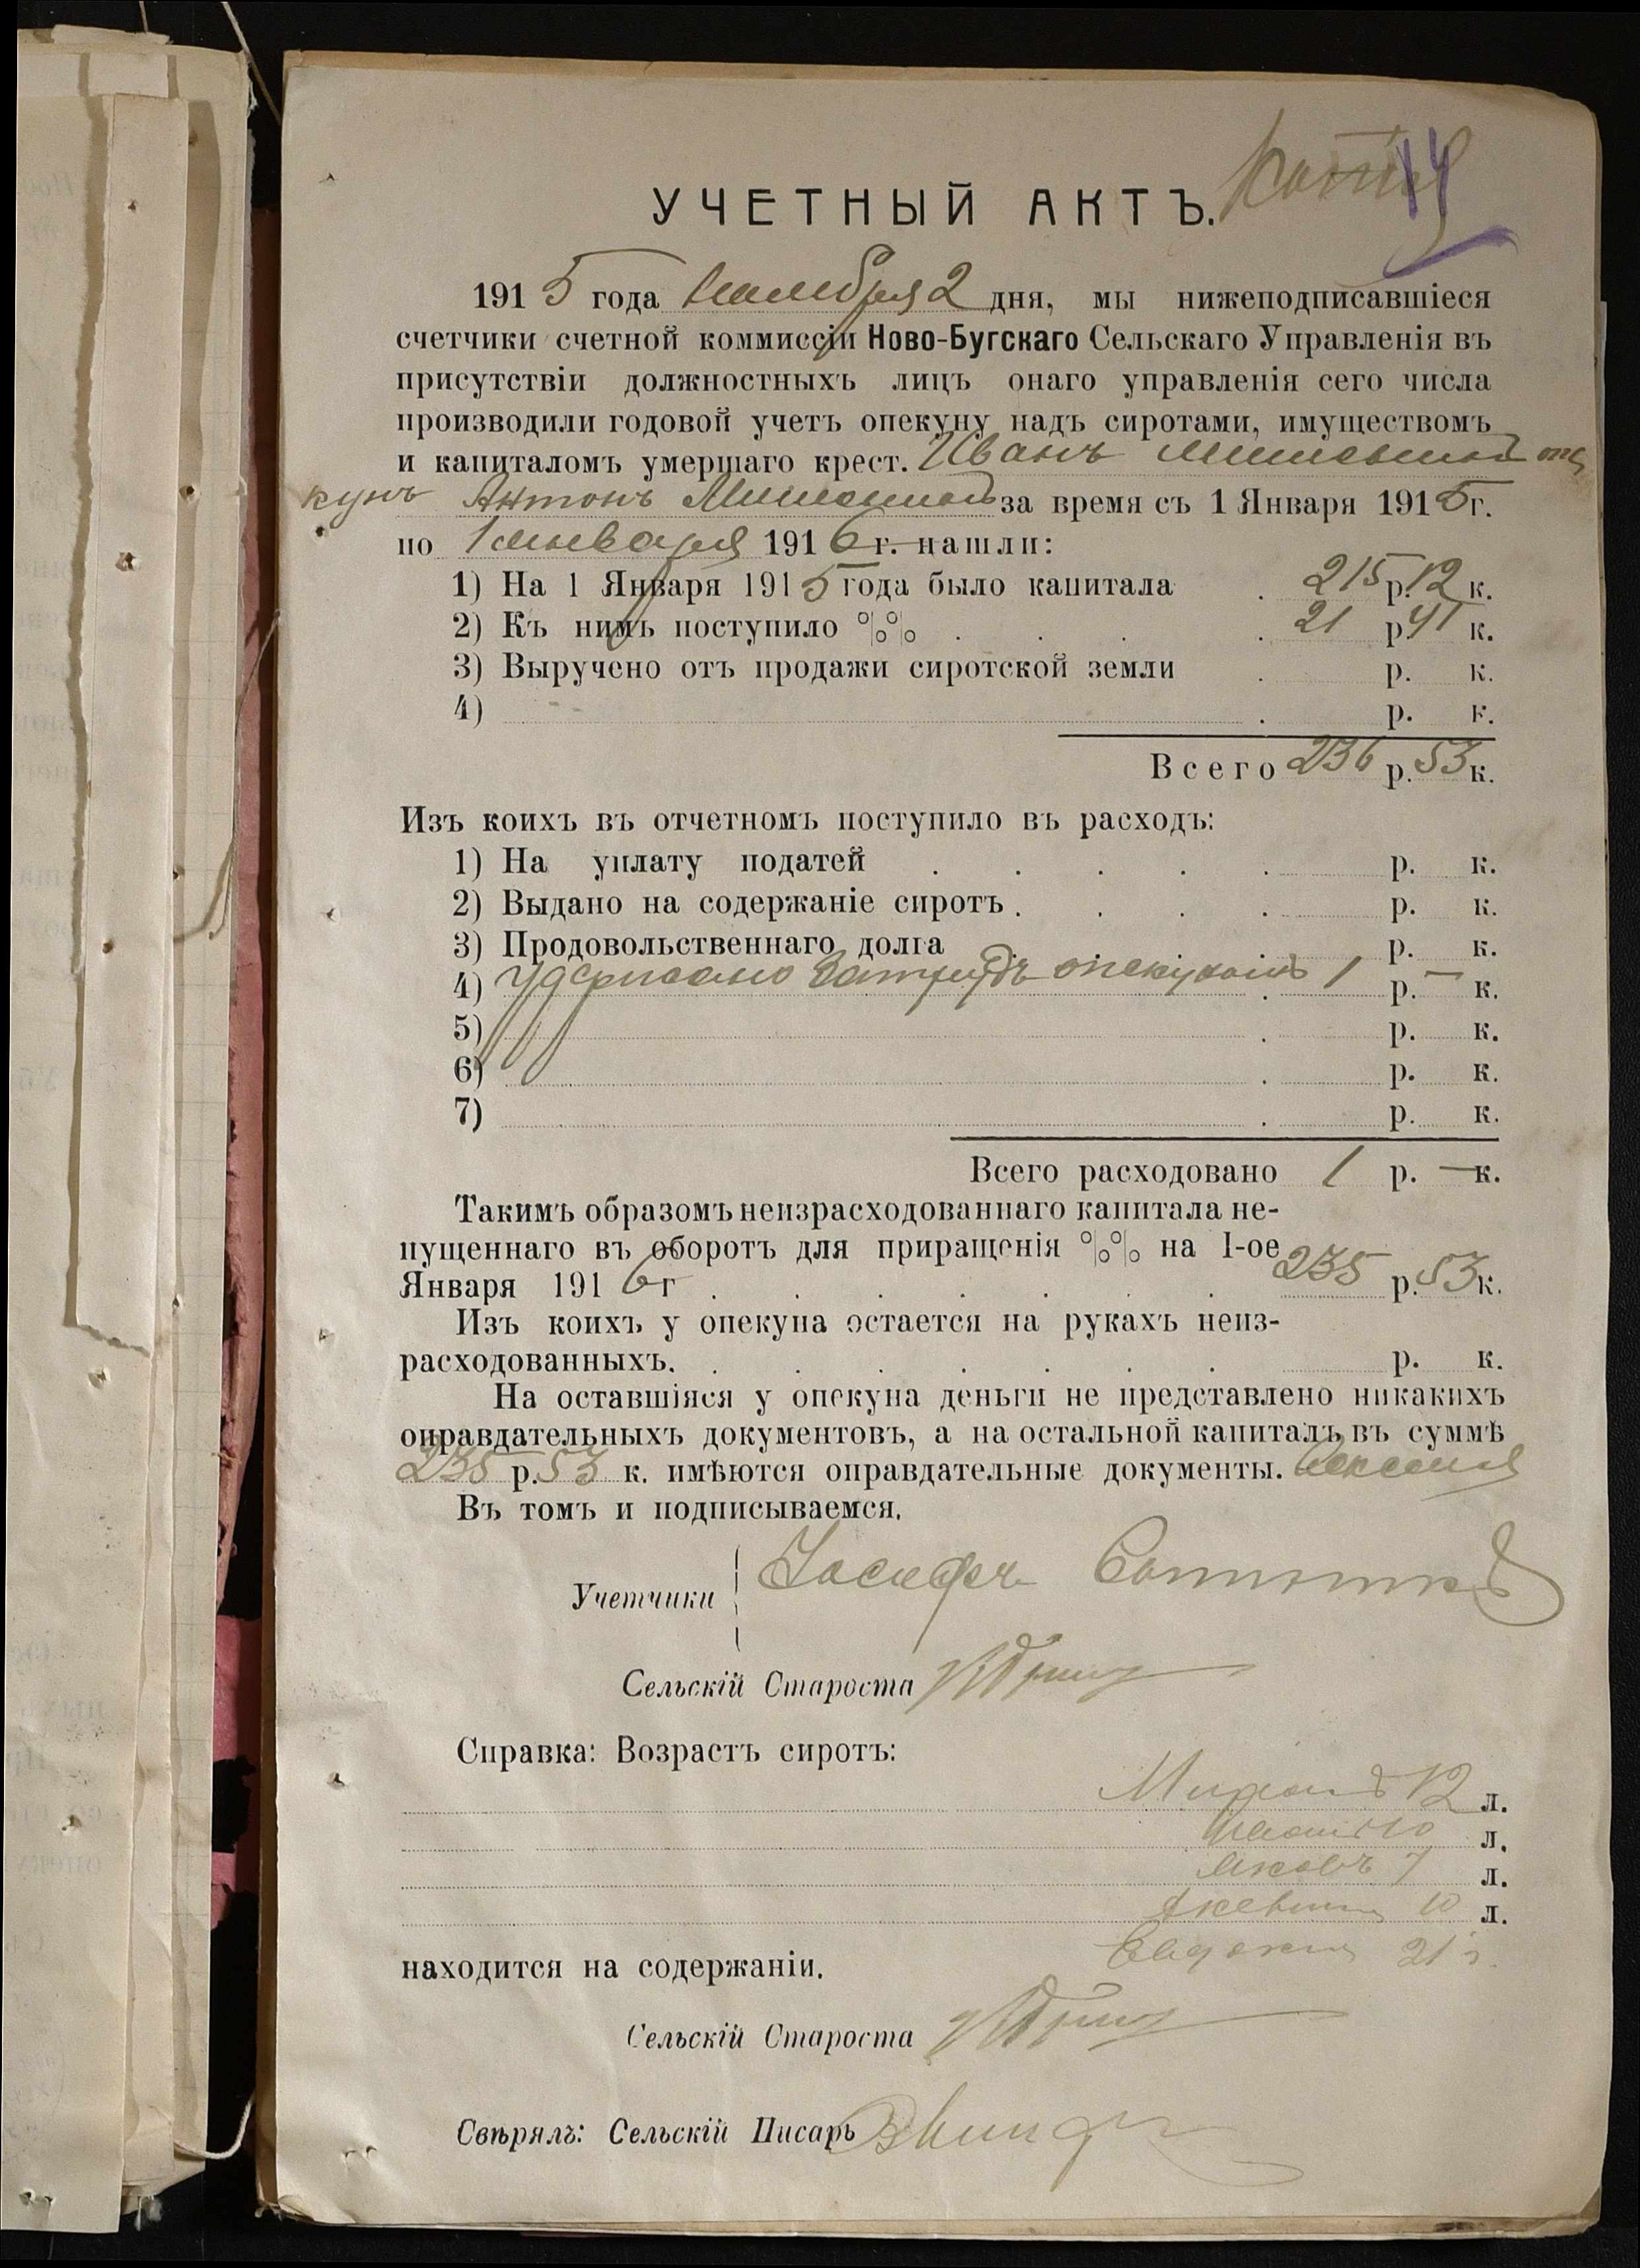 Копія
14
УЧЕТНЫЙ АКТЪ.
1915 года 2 дня, мы нижеподписавшіеся
счетчики счетной коммиссіи Ново-Бугскаго Сельскаго Управленія въ
присутствіи должностныхъ лицъ онаго управленія сего числа
производили годовой учетъ опекуну надъ сиротами, имуществомъ
и капиталомъ умершаго крест. Иванъ опе
кунъ Антонъ за время съ 1 Января 1915 г.
по 1 января 1916 г. нашли:
1) На 1 Января 1915 года было капитала 215 р. 12 к.
2) Къ нимъ поступило %% 21 р. 41 к.
3) Выручено отъ продажи сиротской земли р. к.
4) р. к.
Всего 236 р. 53 к.
Изъ коихъ въ отчетномъ поступило въ расходъ:
1) На уплату податей р. к.
2) Выдано на содержаніе сиротъ р. к.
3) Продовольственнаго долга р. к.
4) Удержано за трудъ опекуномъ 1 р. — к.
5) р. к.
6) р. к.
7) р. к.
Всего расходовано 1 р. — к.
Такимъ образомъ неизрасходованнаго капитала не-
пущеннаго въ оборотъ для приращенія %% на 1-ое
Января 1916 г 235 р. 53 к.
Изъ коихъ у опекуна остается на рукахъ неиз-
расходованныхъ. р. к.
На оставшіяся у опекуна деньги не представлено никакихъ
оправдательныхъ документовъ, а на остальной капиталъ въ суммѣ
235 р. 53 к. имѣются оправдательные документы.
Въ томъ и подписываемся.
Учетчики Іосифъ
Сельскій Староста
Справка: Возрастъ сиротъ:
Миронъ 12 л.
10 л.
Яковъ 7 л.
10 л.
Евдокия 21 г.
находится на содержаніи.
Сельскій Староста
Свѣрялъ: Сельскій Писарь